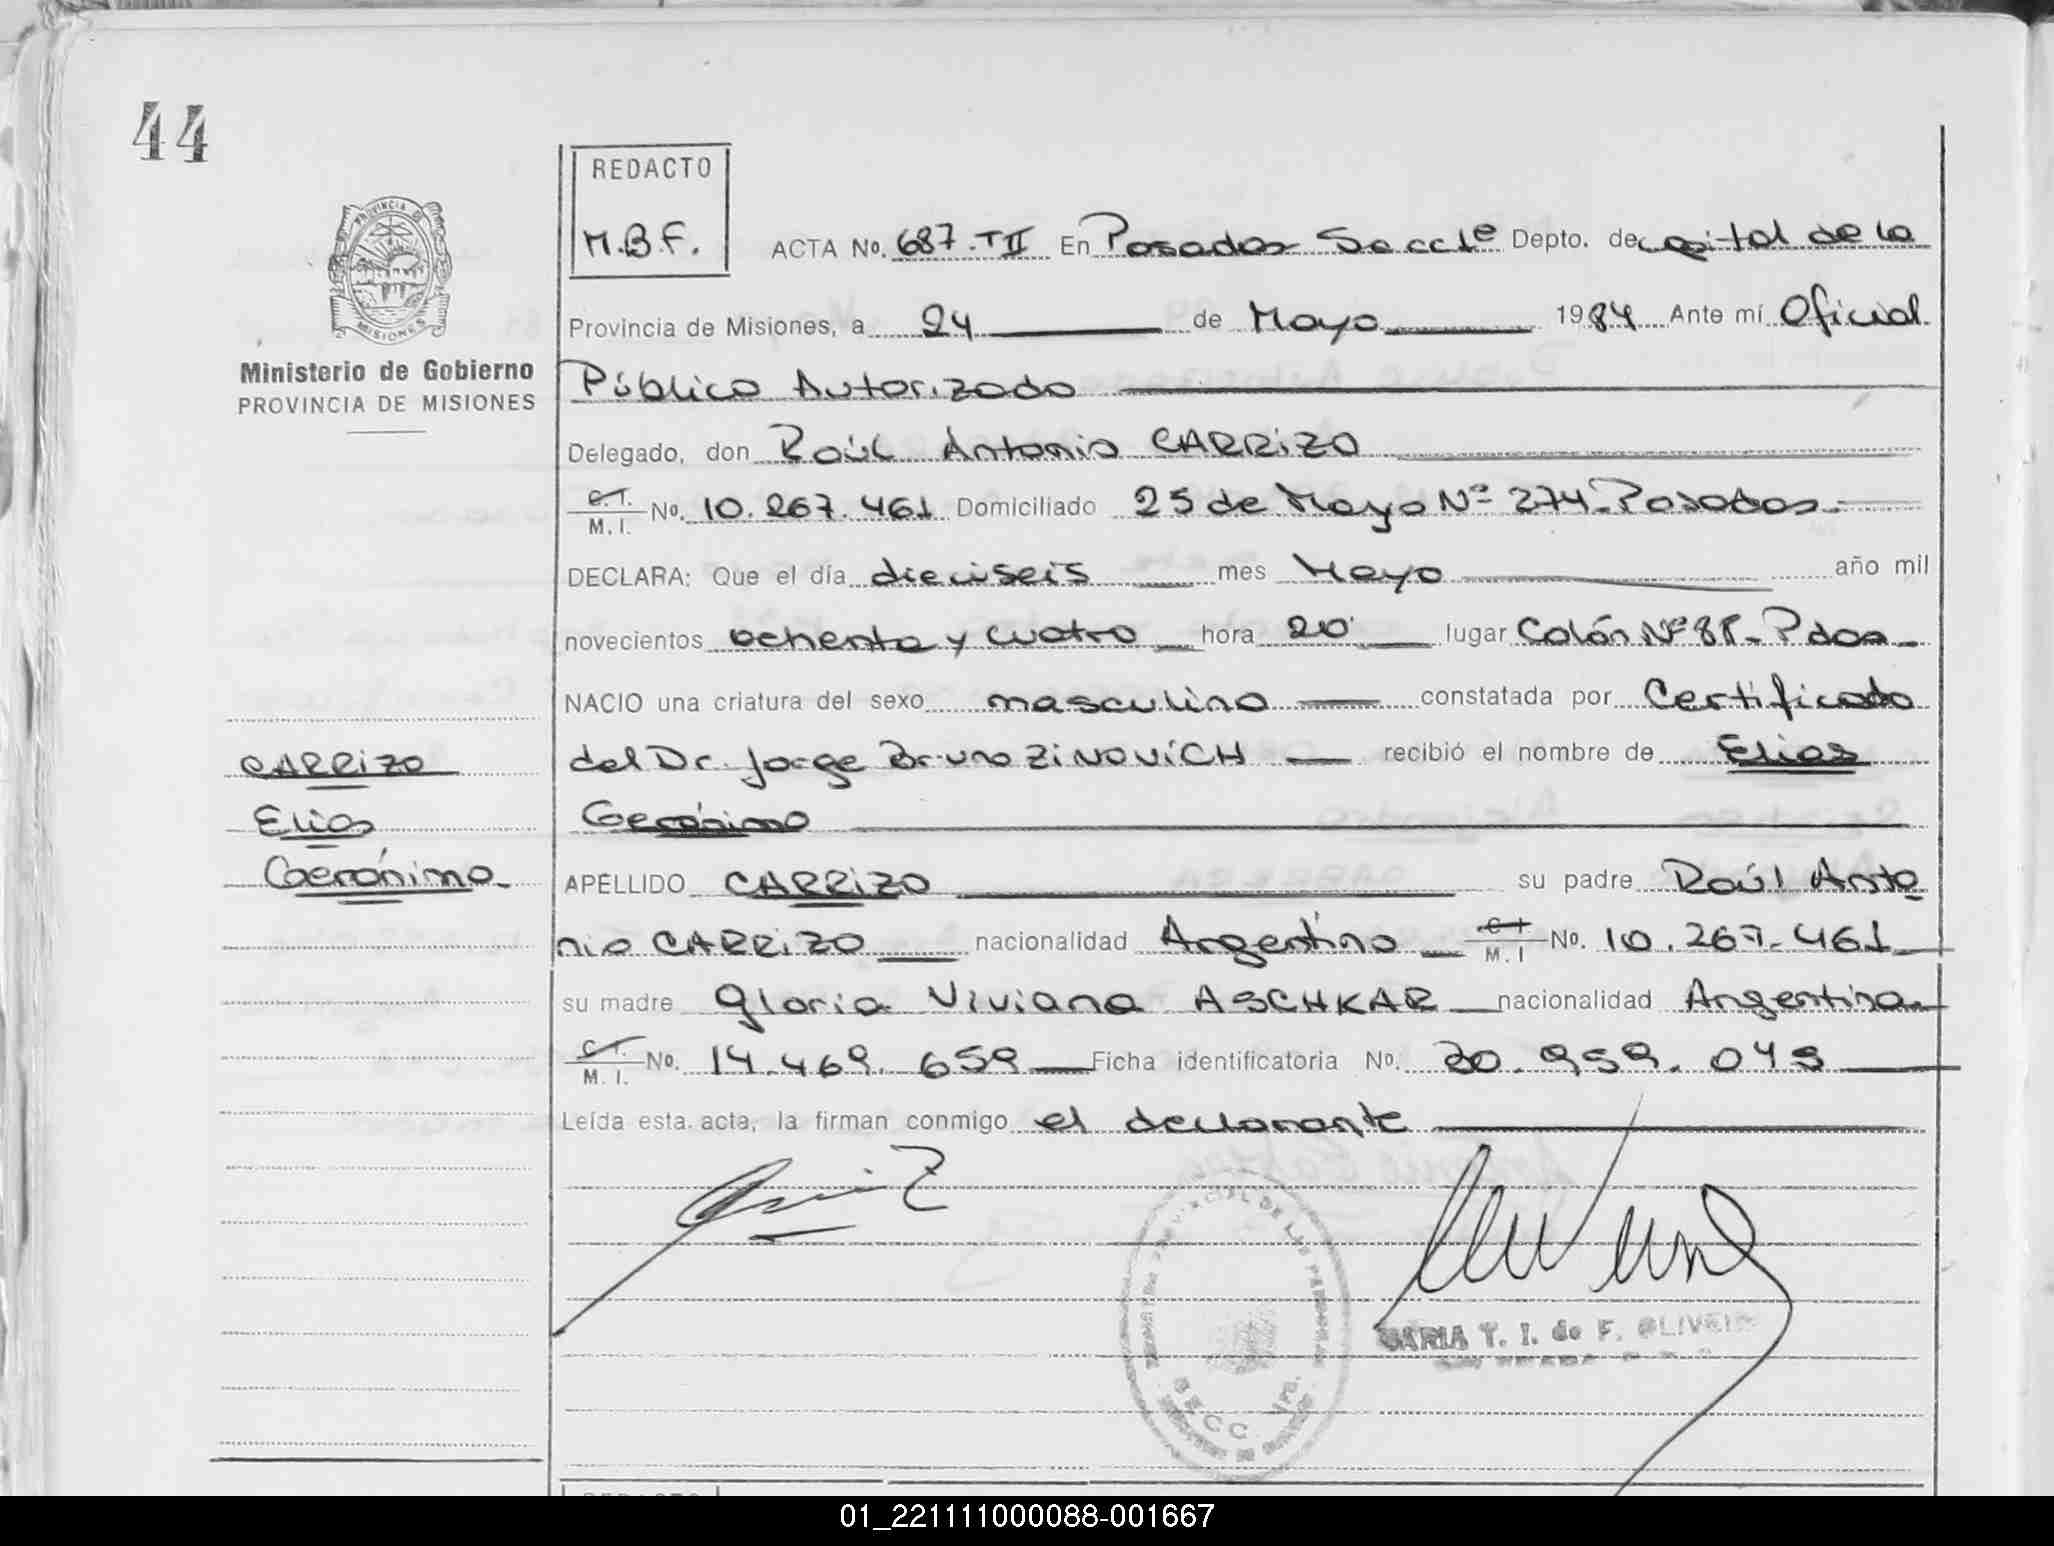 44
REDACTO
M.B.F.
ACTA No. 687.TII En Posadas Secc 1e Depto. de capital de la
PROVINCIA DE
MISIONES
Provincia de Misiones, a 24 de Mayo 1984 Ante mí Oficial
Ministerio de Gobierno
PROVINCIA DE MISIONES
Público Autorizado
Delegado, don Raúl Antonio CARRIZO
C.I. M.I. No. 10.267.461 Domiciliado 25 de Mayo Nº 274-Posadas.-
DECLARA: Que el día dieciseis mes Mayo año mil
novecientos ochenta y cuatro hora 20' lugar Colón Nº - Pdas -
NACIO una criatura del sexo masculino constatada por Certificado
CARRIZO
del Dr. Jorge Bruno ZINOVICH recibió el nombre de Elias
Elias
Gerónimo
Gerónimo-
APELLIDO CARRIZO su padre Raúl Anto
nio CARRIZO nacionalidad Argentino C.I M.I No. 10.267.461
su madre Gloria Viviana ASCHKAR nacionalidad Argentina
C.I. M.I. No. 14.469.659 Ficha identificatoria No. 30.959.045
Leída esta acta, la firman conmigo el declarante
MARIA T. I. de F. OLIVEIR
SECC 1ra.
REDACTO
01_221111000088-001667